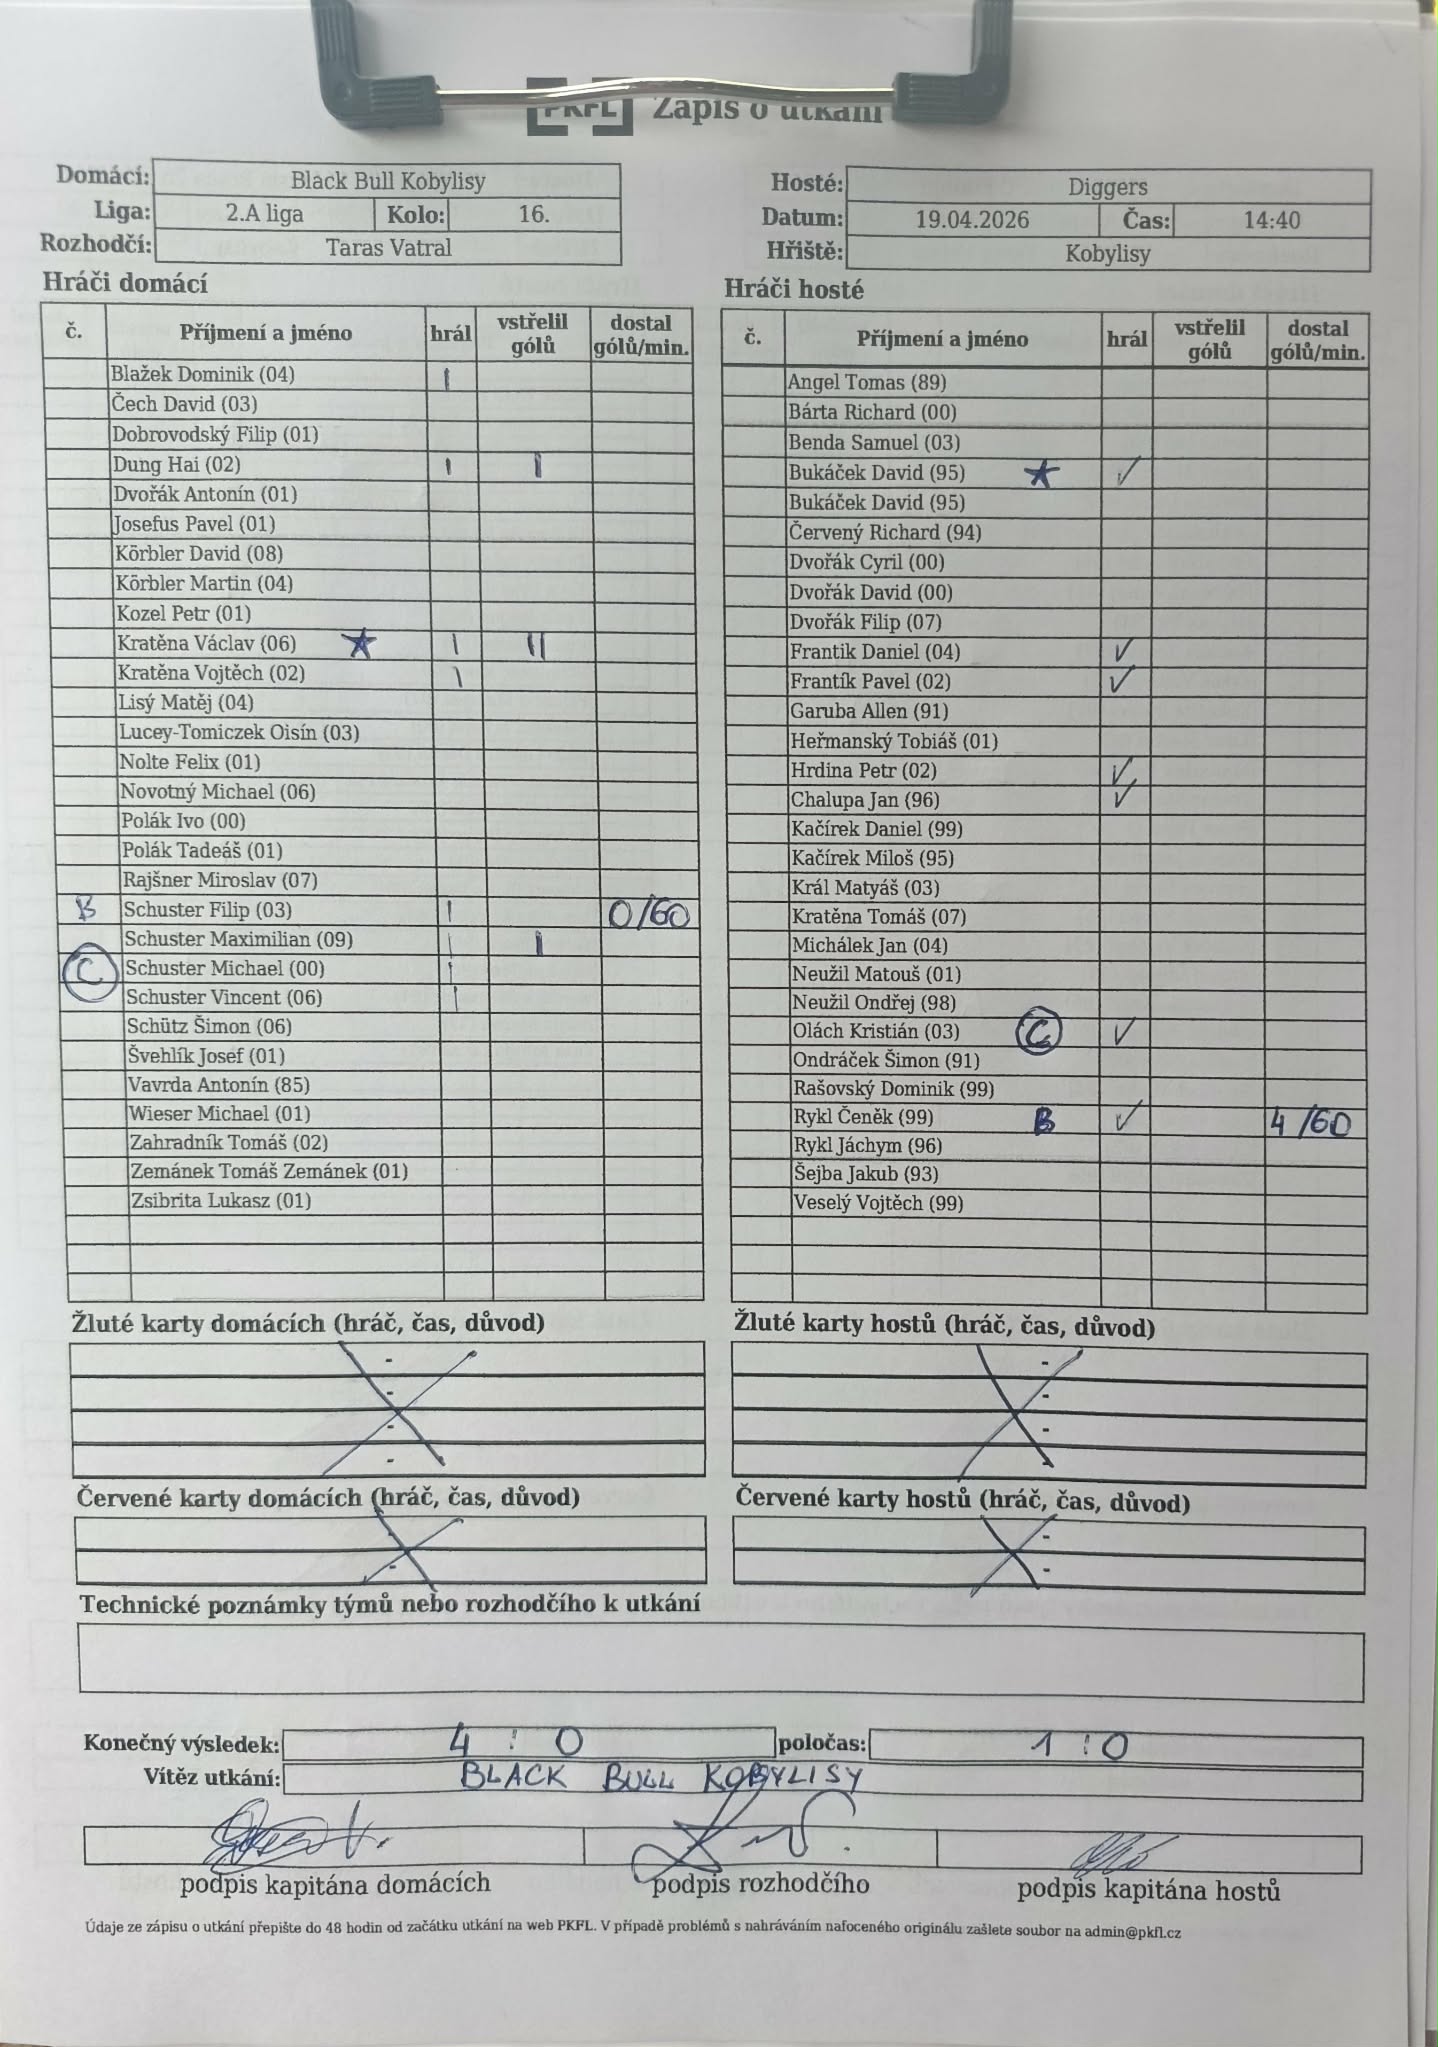 PKFL Zápis o utkání
Domácí: Black Bull Kobylisy
Liga: 2.A liga Kolo: 16.
Rozhodčí: Taras Vatral
Hosté: Diggers
Datum: 19.04.2026 Čas: 14:40
Hřiště: Kobylisy
Hráči domácí
č. Příjmení a jméno hrál vstřelil gólů dostal gólů/min.
Blažek Dominik (04) I
Čech David (03)
Dobrovodský Filip (01)
Dung Hai (02) I I
Dvořák Antonín (01)
Josefus Pavel (01)
Körbler David (08)
Körbler Martin (04)
Kozel Petr (01)
Kratěna Václav (06) ★ I II
Kratěna Vojtěch (02) I
Lisý Matěj (04)
Lucey-Tomiczek Oisín (03)
Nolte Felix (01)
Novotný Michael (06)
Polák Ivo (00)
Polák Tadeáš (01)
Rajšner Miroslav (07)
B Schuster Filip (03) I 0/60
Schuster Maximilian (09) I I
C Schuster Michael (00) I
Schuster Vincent (06) I
Schütz Šimon (06)
Švehlík Josef (01)
Vavrda Antonín (85)
Wieser Michael (01)
Zahradník Tomáš (02)
Zemánek Tomáš Zemánek (01)
Zsibrita Lukasz (01)
Hráči hosté
č. Příjmení a jméno hrál vstřelil gólů dostal gólů/min.
Angel Tomas (89)
Bárta Richard (00)
Benda Samuel (03)
Bukáček David (95) ★ ✓
Bukáček David (95)
Červený Richard (94)
Dvořák Cyril (00)
Dvořák David (00)
Dvořák Filip (07)
Frantik Daniel (04) ✓
Frantík Pavel (02) ✓
Garuba Allen (91)
Heřmanský Tobiáš (01)
Hrdina Petr (02) ✓
Chalupa Jan (96) ✓
Kačírek Daniel (99)
Kačírek Miloš (95)
Král Matyáš (03)
Kratěna Tomáš (07)
Michálek Jan (04)
Neužil Matouš (01)
Neužil Ondřej (98)
Olách Kristián (03) C ✓
Ondráček Šimon (91)
Rašovský Dominik (99)
Rykl Čeněk (99) B ✓ 4/60
Rykl Jáchym (96)
Šejba Jakub (93)
Veselý Vojtěch (99)
Žluté karty domácích (hráč, čas, důvod)
-
-
-
-
Žluté karty hostů (hráč, čas, důvod)
-
-
-
-
Červené karty domácích (hráč, čas, důvod)
-
-
Červené karty hostů (hráč, čas, důvod)
-
-
Technické poznámky týmů nebo rozhodčího k utkání
Konečný výsledek: 4 : 0 poločas: 1 : 0
Vítěz utkání: BLACK BULL KOBYLISY
podpis kapitána domácích podpis rozhodčího podpis kapitána hostů
Údaje ze zápisu o utkání přepište do 48 hodin od začátku utkání na web PKFL. V případě problémů s nahráváním nafoceného originálu zašlete soubor na admin@pkfl.cz